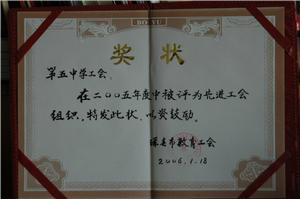 BO YU
奖状
第五中学工会：
在二〇〇五年度中被评为先进工会
组织，特发此状，以资鼓励。
市教育工会
2006.1.18